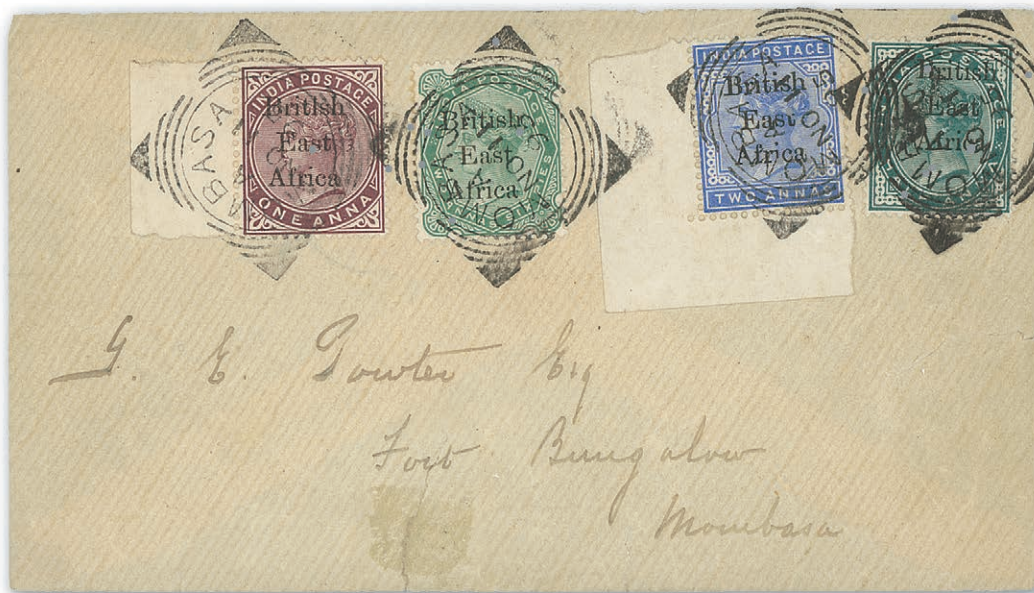 INDIA POSTAGE
Britlsh
East
Africa
ONE ANNA
British
East
Africa
INDIA POSTAGE
British
East
Africa
TWO ANNAS
British
East
Africa
ABASA
MOMBASA
G. E. Gowter Esq
Fort Bungalow
Mombasa